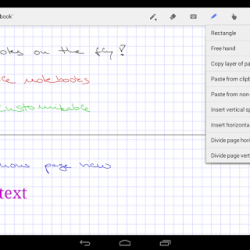 book
Rectangle
otes on the fly!
Free hand
Copy layer of pa
Paste from clipb
ce notebooks
Paste from non
Insert vertical sp
customizable
Insert horizonta
Divide page hori
Divide page vert
ious page view
text